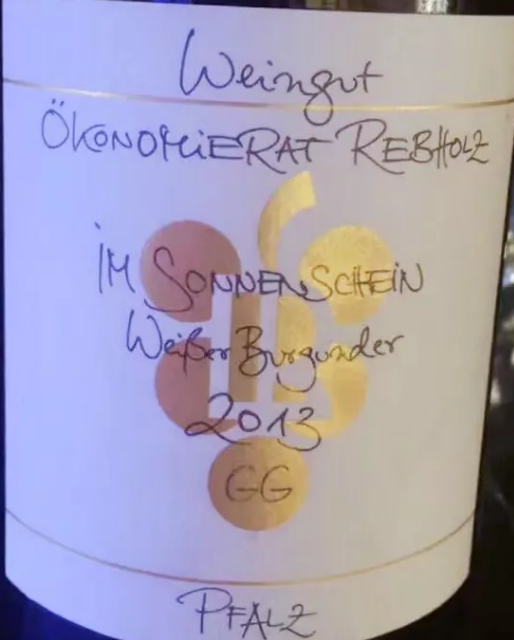 Weingut
ÖKONOMiERAT REBHOLZ
iM SONNENSCHEiN
Weißer Burgunder
2013
GG
PFALZ